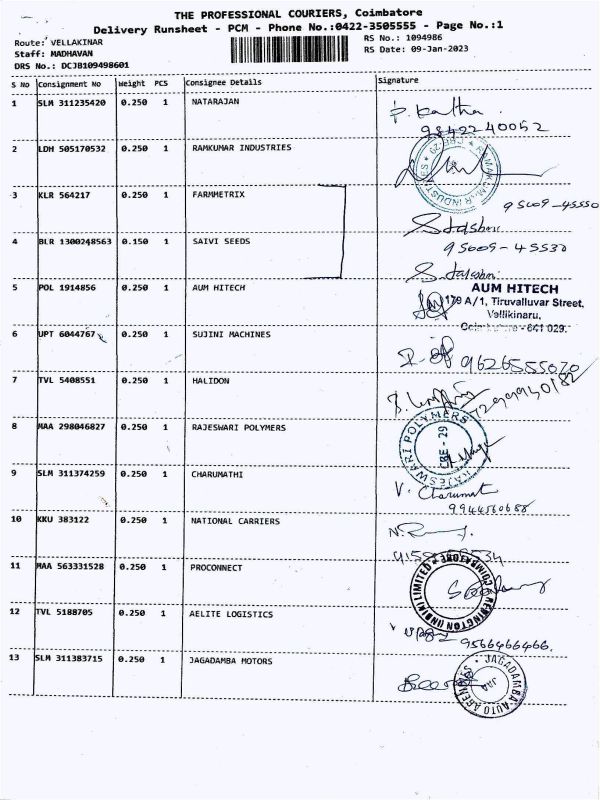 THE PROFESSIONAL COURIERS, Coimbatore
Delivery Runsheet - PCM - Phone No.:0422-3505555 - Page No.:1
Route: VELLAKINAR
RS No.: 1094986
Staff: MADHAVAN
RS Date: 09-Jan-2023
DRS No.: DCJB109498601
S No Consignment No Weight PCS Consignee Details Signature
1 SLM 311235420 0.250 1 NATARAJAN
9842240052
2 LDH 505170532 0.250 1 RAMKUMAR INDUSTRIES
RAMKUMAR INDUSTRIES ★ CBE-29 ★
3 KLR 564217 0.250 1 FARMMETRIX
95009-45550
4 BLR 1300248563 0.150 1 SAIVI SEEDS
95009-45530
5 POL 1914856 0.250 1 AUM HITECH
AUM HITECH
179 A/1, Tiruvalluvar Street,
Vellikinaru,
Coimbatore - 641 029.
6 UPT 6044767 0.250 1 SUJINI MACHINES
9626555020
7 TVL 5408551 0.250 1 HALIDON
8 MAA 298046827 0.250 1 RAJESWARI POLYMERS
RAJESWARI POLYMERS
CBE - 29
9 SLM 311374259 0.250 1 CHARUMATHI
V. Charumat
10 KKU 383122 0.250 1 NATIONAL CARRIERS
11 MAA 563331528 0.250 1 PROCONNECT
REDINGTON (INDIA) LIMITED ★ COIMBATORE
12 TVL 5188705 0.250 1 AELITE LOGISTICS
9566466466.
13 SLM 311383715 0.250 1 JAGADAMBA MOTORS
JAGADAMBA AUTO AGENCIES
JAA